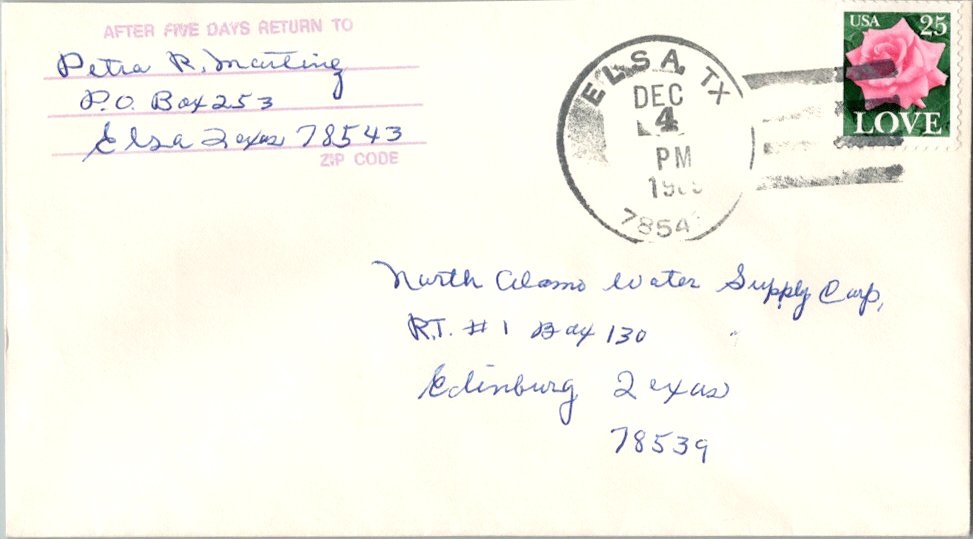 AFTER FIVE DAYS RETURN TO
Petra R. Martinez
P.O. Box 253
Elsa Texas 78543
ZIP CODE
ELSA, TX
DEC
4
PM
7854
USA 25
LOVE
North Alamo Water Supply Corp,
RT. # 1 Box 130
Edinburg Texas
78539